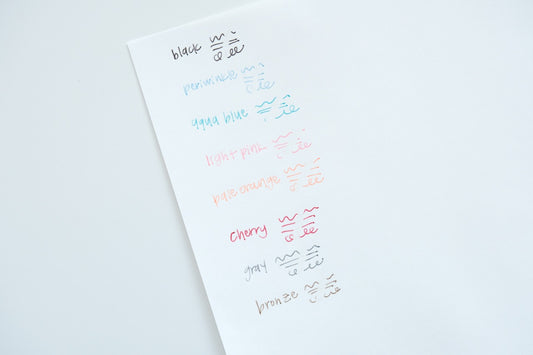 black
periwinkle
aqua blue
light pink
pale orange
cherry
gray
bronze